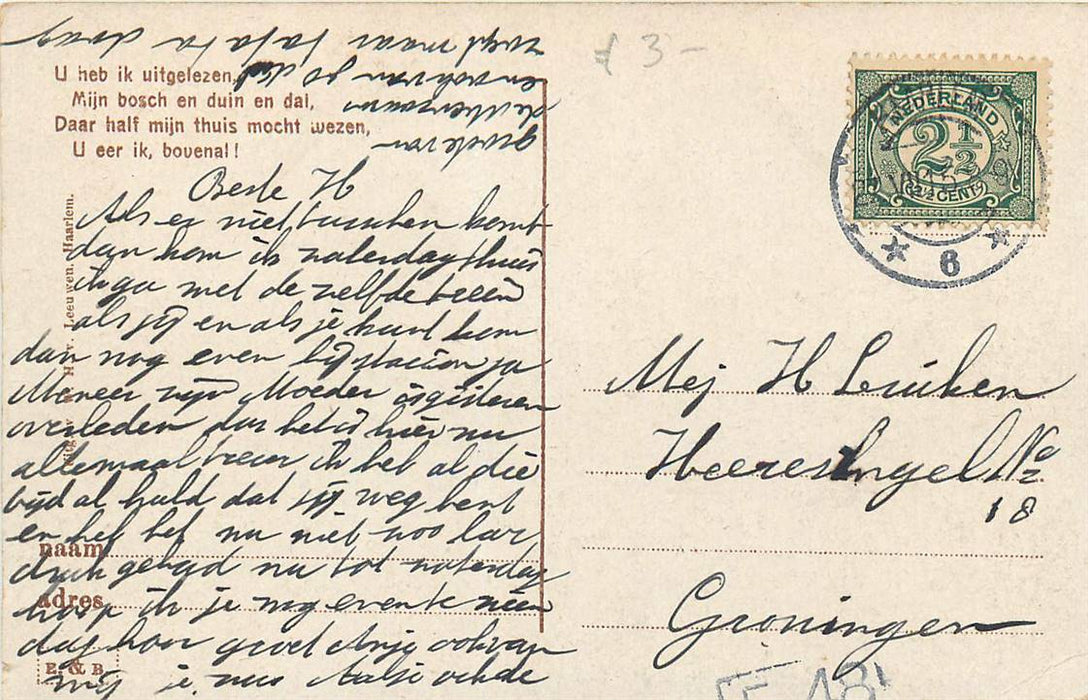 U heb ik uitgelezen,
Mijn bosch en duin en dal,
Daar half mijn thuis mocht wezen,
U eer ik, bovenal!
Beste H
Als er niet tusschen komt
dan kom ik zaterdag thuis
ik ga met de zelfde trein
als jij en als je kunt kom
dan nog even bij station ja
Meneer zijn Moeder is gisteren
overleden dus het is hier nu
allemaal treur ik heb al die
tijd al huld dat jij weg bent
en heb het nu niet zoo
druk gehad nu tot zaterdag
hoop ik je nog even te zien
dag hoor groet Antje ook van
mij je zus
zegt maar dag
en ook van
de
naam
adres
E. & B.
Uitg. H. v. Leeuwen. Haarlem.
3-
NEDERLAND
2 1/2
2½ CENT
6
Mej H Luiken
Heeresingel No
18
Groningen